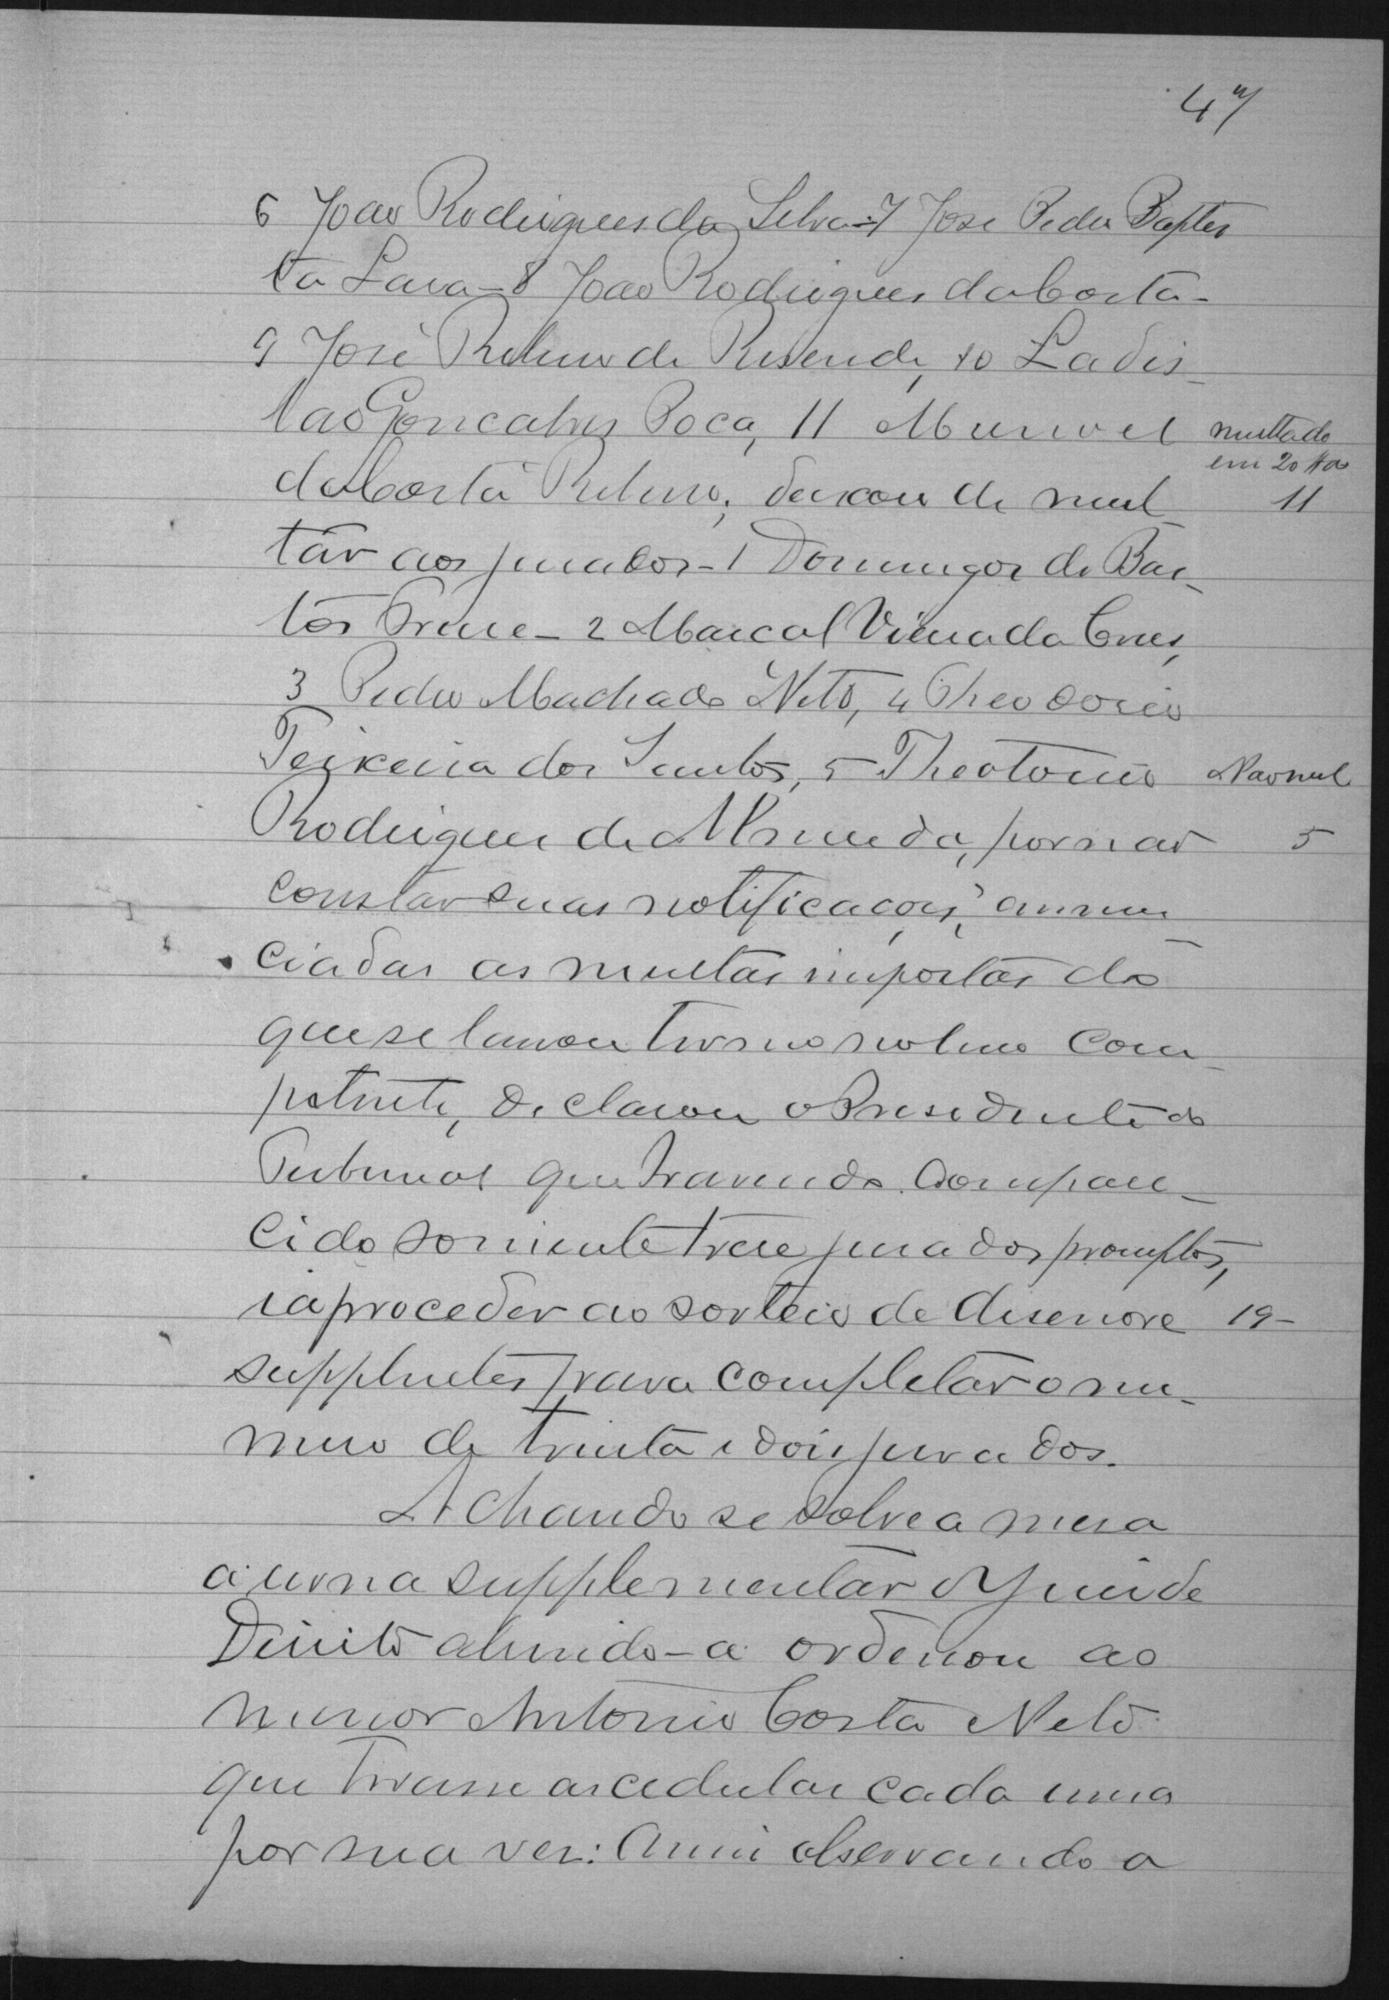 47
6 João Rodrigues da Silva - 7 José Pedro Baptis
ta Lara - 8 João Rodrigues da Costa -
9 José Ribeiro de Resende, 10 Ladis-
lao Gonçalves Poça, 11 Manoel multado
em 20 $ 00
da Costa Ribeiro; deixou de mul- 11
tar aos jurados - 1 Domingos de Bas-
tos Freire - 2 Marcal Vieira da Cruz,
3 Pedro Machado Neto, 4 Theodorio
Teixeira dos Santos, 5 - Theotonio Não mul
Rodrigues de Almeida, por não 5
constar suas notificações; annun-
ciadas as multas impostas do
que se lavrou termo no livro com-
petente, declarou o Presidente do
Tribunal que havendo compare-
cido somente treze jurados promptos,
ia proceder ao sorteio de desenove 19-
supplentes para completar o nu-
mero de trinta e dois jurados.
Achando se sobre a mesa
a urna supplementar o Juiz de
Direito abrindo-a ordenou ao
menor Antonio Costa Neto
que tirasse as cedulas cada uma
por sua vez: Assim observando a